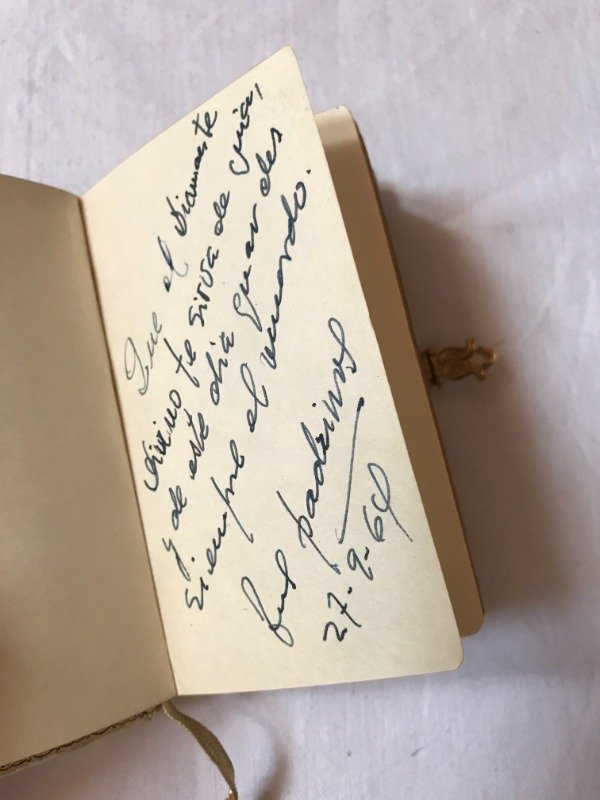 Que el Diamante
divino te sirva de guia,
y de este dia guardes
siempre el recuerdo.
tus padrinos
27-9-64